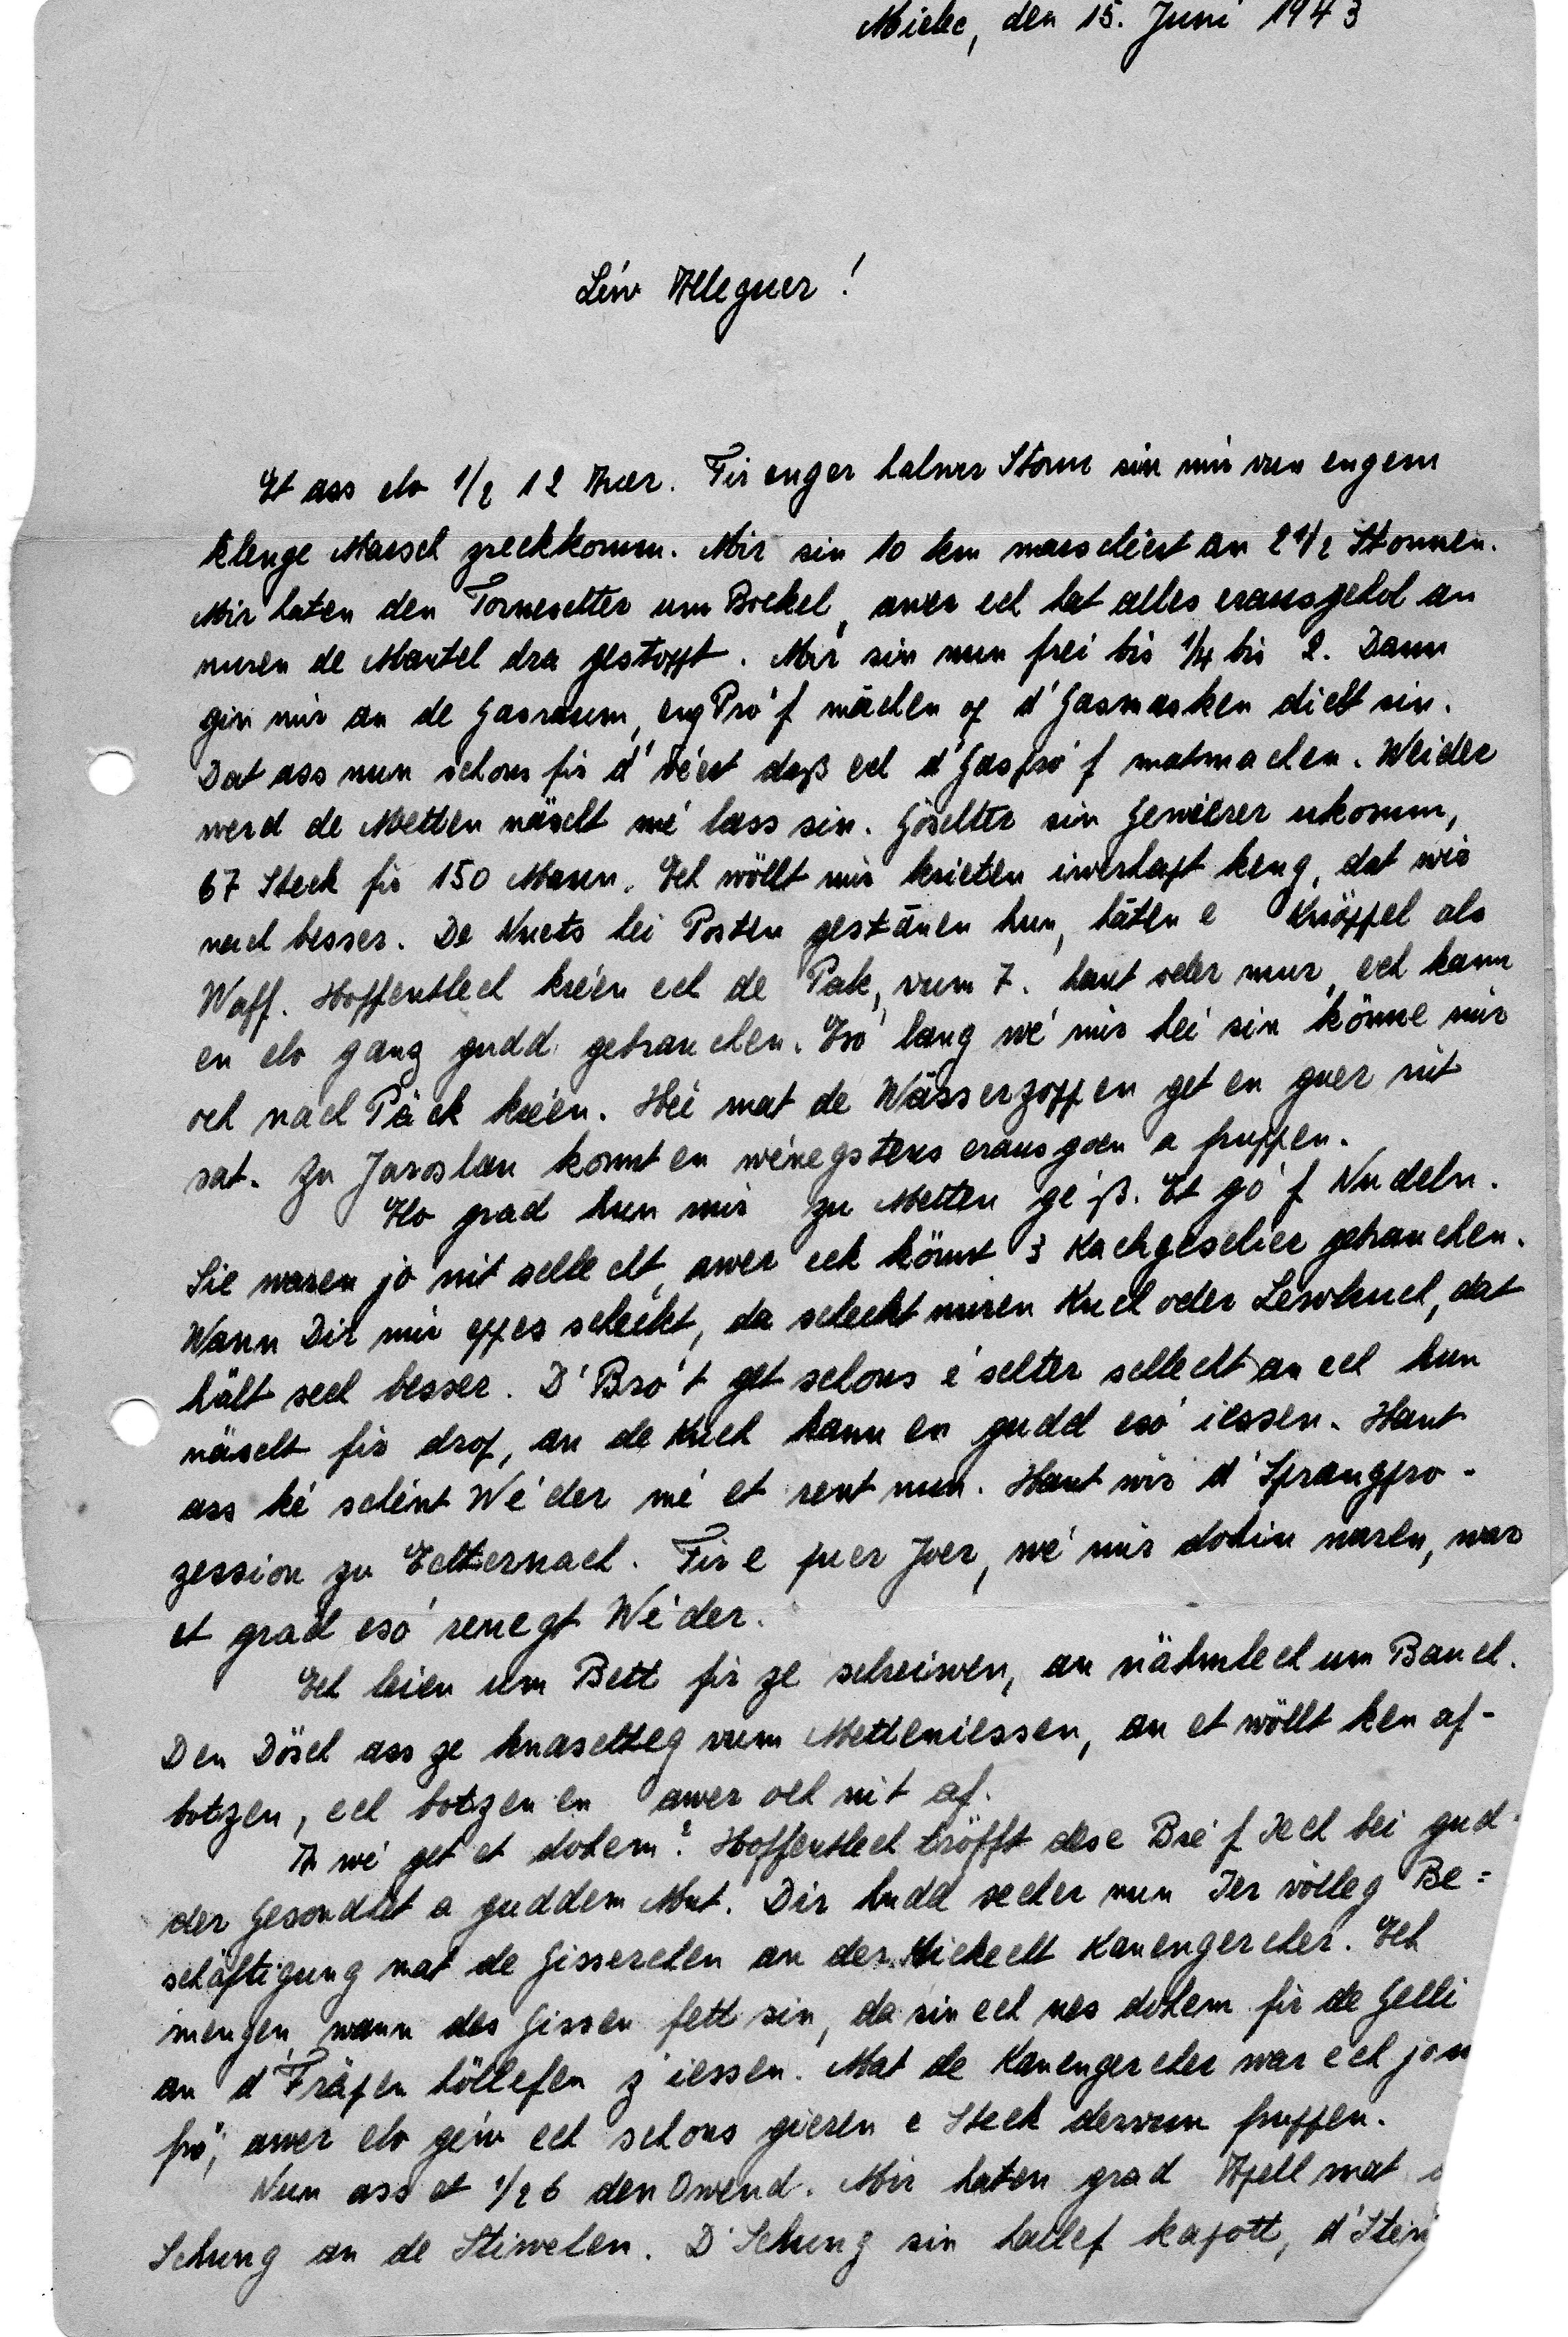 Mielec, den 15. Juni 1943
Léiw Alleguer!
Et ass elo 1/2 12 Auer. Fir enger halwer Stonn sin mir vun engem
klenge Marsch zreckkomm. Mir sin 10 km marschéiert an 2 1/2 Stonnen.
Mir haten den Torneschter um Bockel, awer ech hat alles erausgehol an
nuren de Mantel dra gestoppt. Mir sin nun frei bis 1/4 bis 2. Dann
gin mir an de Gasraum, eng Pro'f mächen op d'Gasmasken dicht sin.
Dat ass nun schons fir d'véiert daß ech d'Gaspro'f matmachen. Weider
werd de Metten näischt mé lass sin. Göschter sin Gewierer ukomm,
67 Steck fir 150 Mann. Ech wöllt mir kriéten iwerhapt keng, dat wir
nach besser. De Nuets hei Posten gestānen hun, hāten e Knöppel als
Waff. Hoffentlech kréien ech de Pak, vum 7. haut oder mur, ech kann
en elo ganz gudd gebrauchen. Eso' lang wé mir hei sin könne mir
och nach Päck kréien. Hei mat de Wässerzoppen get en guer nit
sat. Zu Jaroslau konnt en wénegstens erausgoen a fruppen.
Elo grad hun mir zu Metten gé'ß. Et go'f Nudeln.
Sie waren jo nit schlecht, awer ech könnt 3 Kachgeschier gebrauchen.
Wann Dir mir eppes schéckt, da scheckt nuren Kuch oder Leswkuch, dat
hält sech besser. D'Bro't get schons é'schter schlecht an ech hun
näischt fir drop, an de Kuch kann en gudd eso' iessen. Haut
ass ké schéint Wé'der mé et rent nun. Haut wir d'Sprangpro-
zession zu Echternach. Fir e puer Joer, wé mir dohin waren, war
et grad eso' renegt Wé'der.
Ech leien um Bett fir ze schreiwen, an nähmlech um Bauch.
Den Dösch ass ze knaschteg vum Metteniessen, an et wöllt ken af-
botzen, ech botzen en awer och nit af.
A wé get et dohem? Hoffentlech tröfft dese Bré'f Iech bei gud-
der Gesondhét a guddem Mut. Dir hudd secher nun Ier völleg Be=
schäftigung mat de Gisserchen an der Kanengercher. Ech
mengen, wann des Gissen fett sin, da sin ech nes dohem fir de Gelli
an d'Fräpen höllefen z'iessen. Mat de Kanengercher war ech jo nit
fro', awer elo géiw ech schons gieren e Steck dervun fruppen.
Nun ass et 1/2 6 den Owend. Mir haten grad Apell mat
Schung an de Stiwelen. D'Schung sin hallef kapott, d'